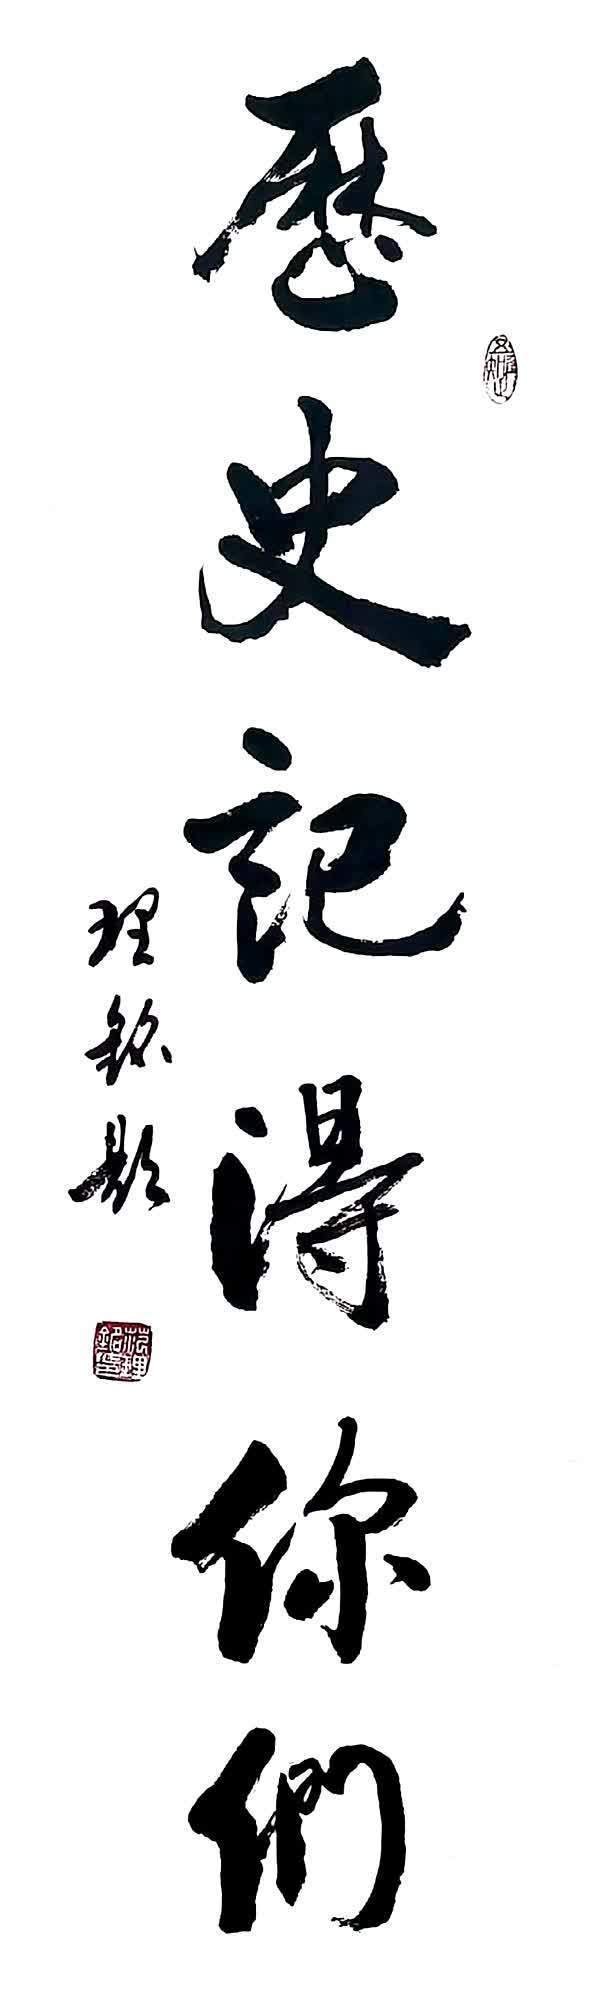 歷史記得你們
理銘題